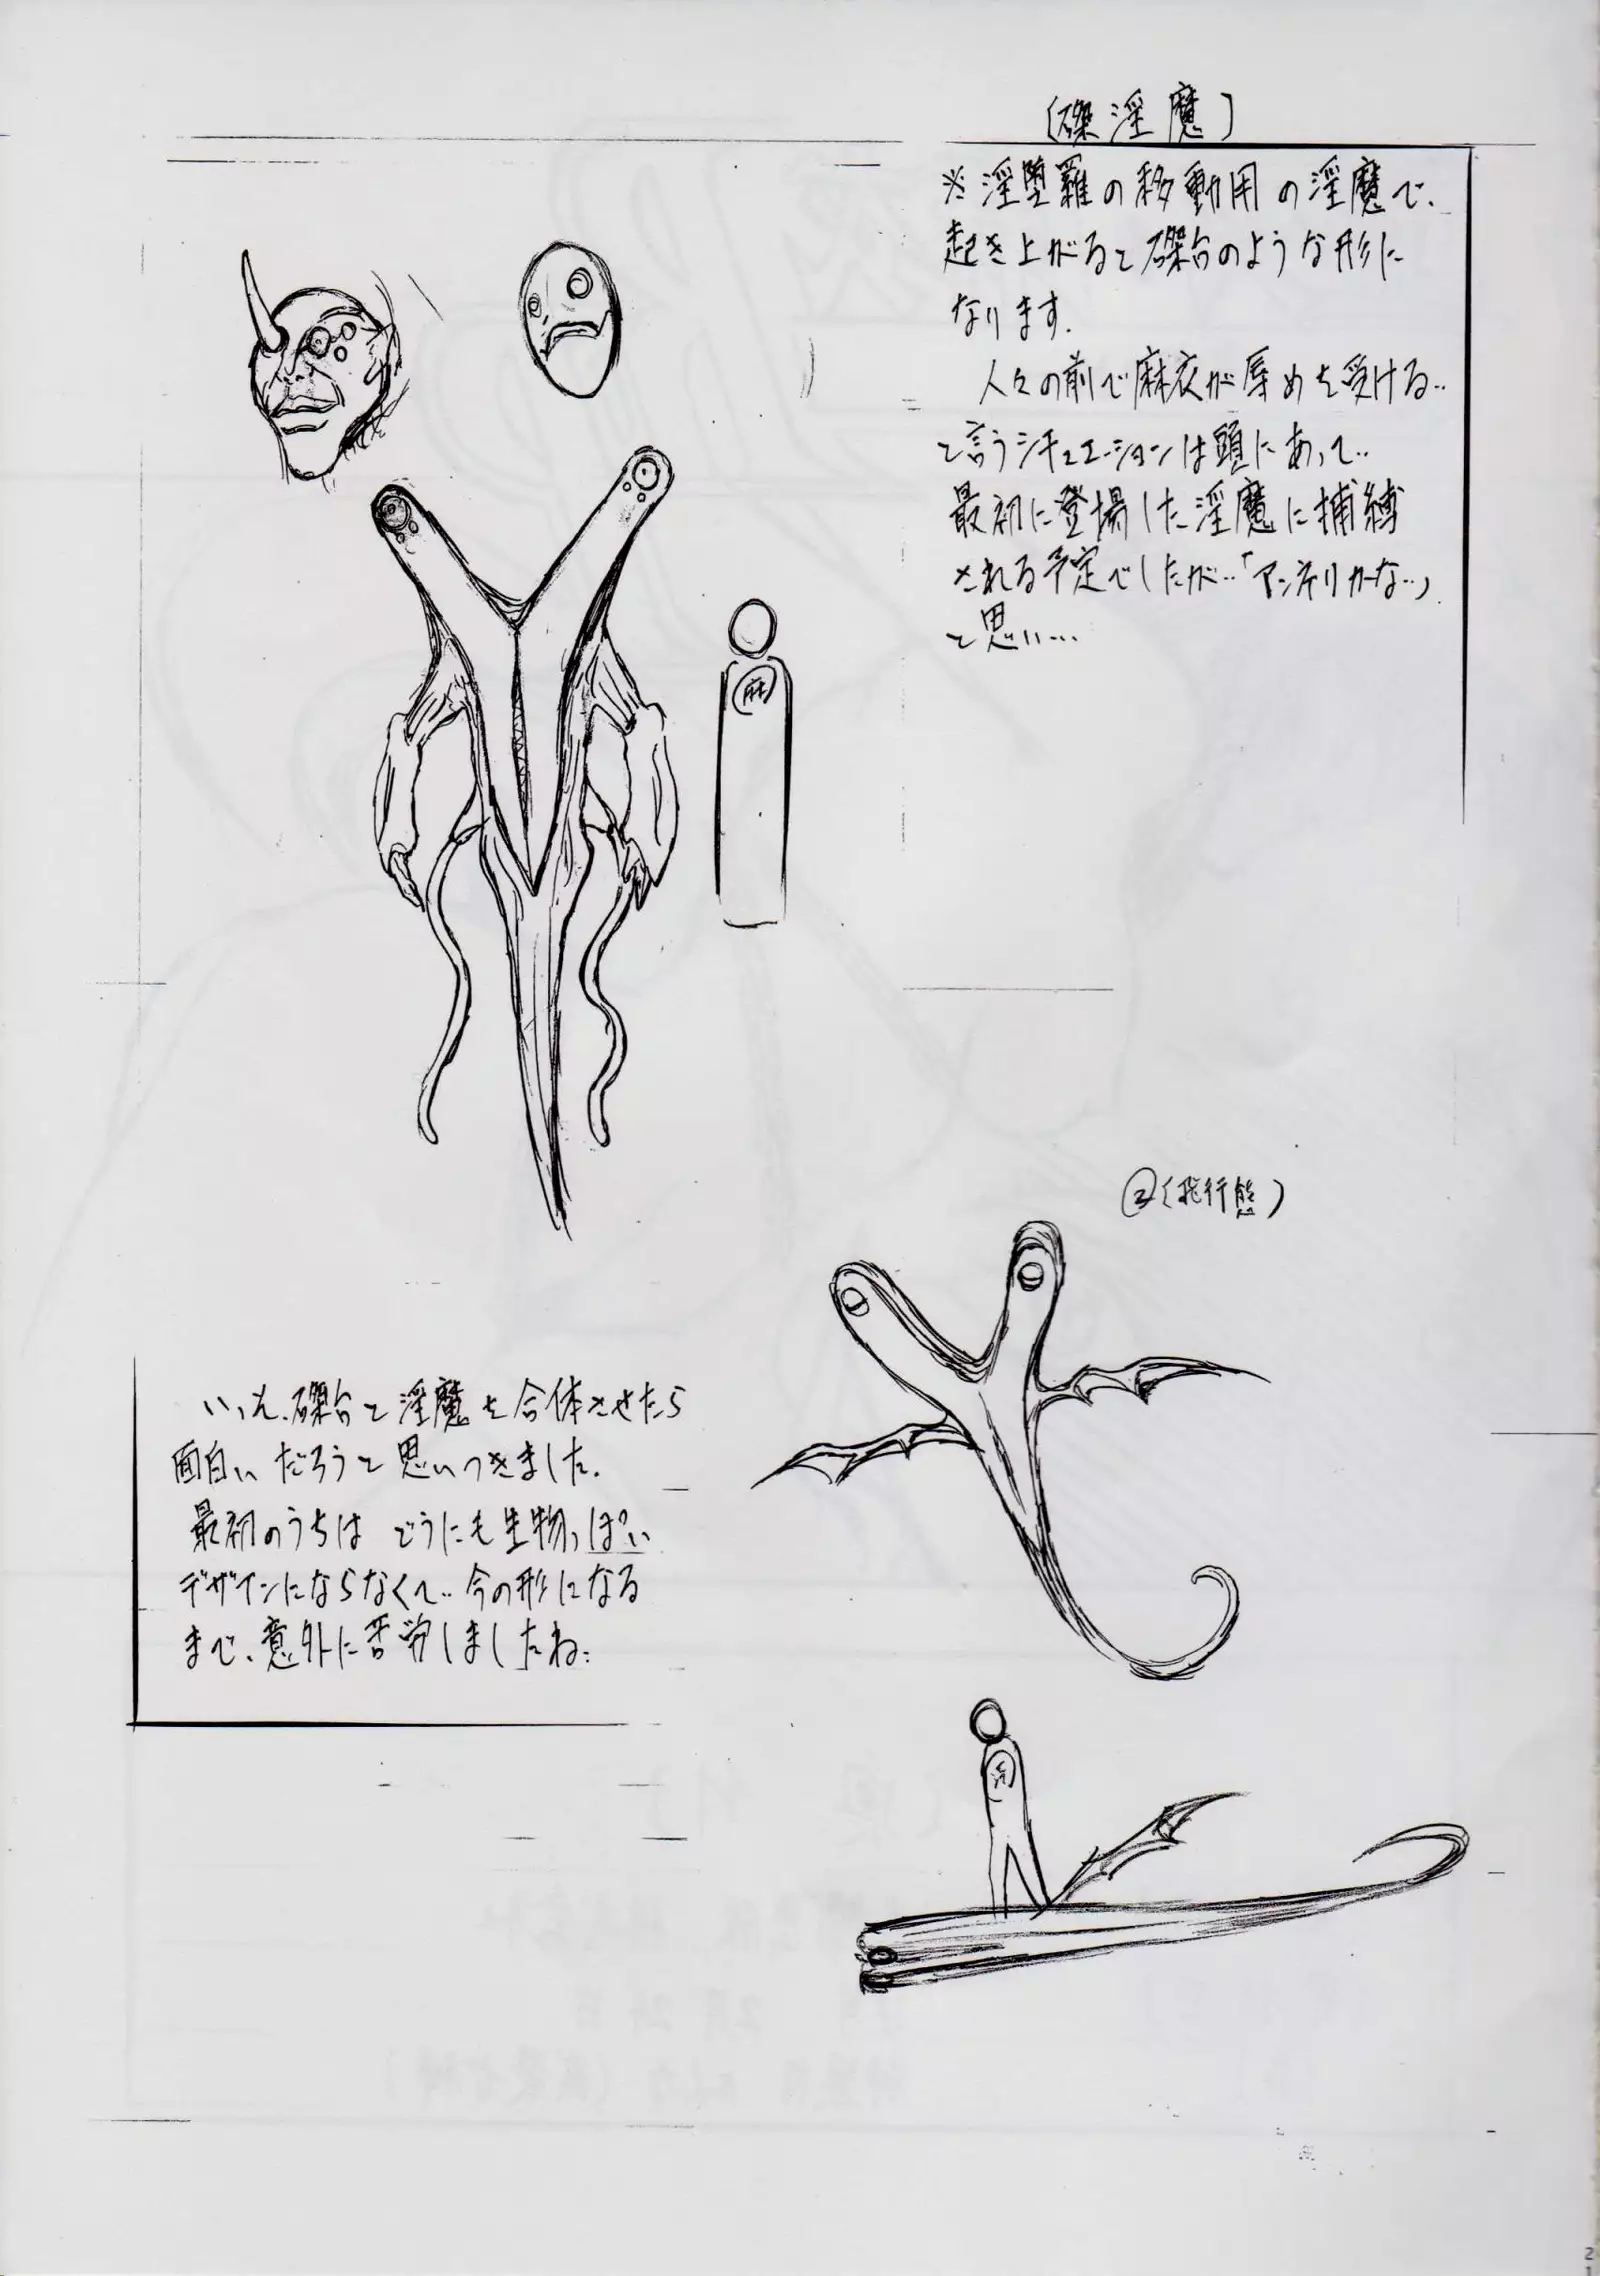 〔磔淫魔〕
※淫堕羅の移動用の淫魔で、
起き上がると磔台のような形に
なります。
人々の前で麻衣が辱めを受ける‥
と言うシチュエーションは頭にあって‥
最初に登場した淫魔に捕縛
される予定でしたが‥「アンチリカーな‥」
と思い…
麻
②(飛行態)
いっそ、磔台と淫魔を合体させたら
面白いだろうと思いつきました。
最初のうちは どうにも生物っぽい
デザインにならなくて‥今の形になる
まで、意外に苦労しましたね‥
淫
21